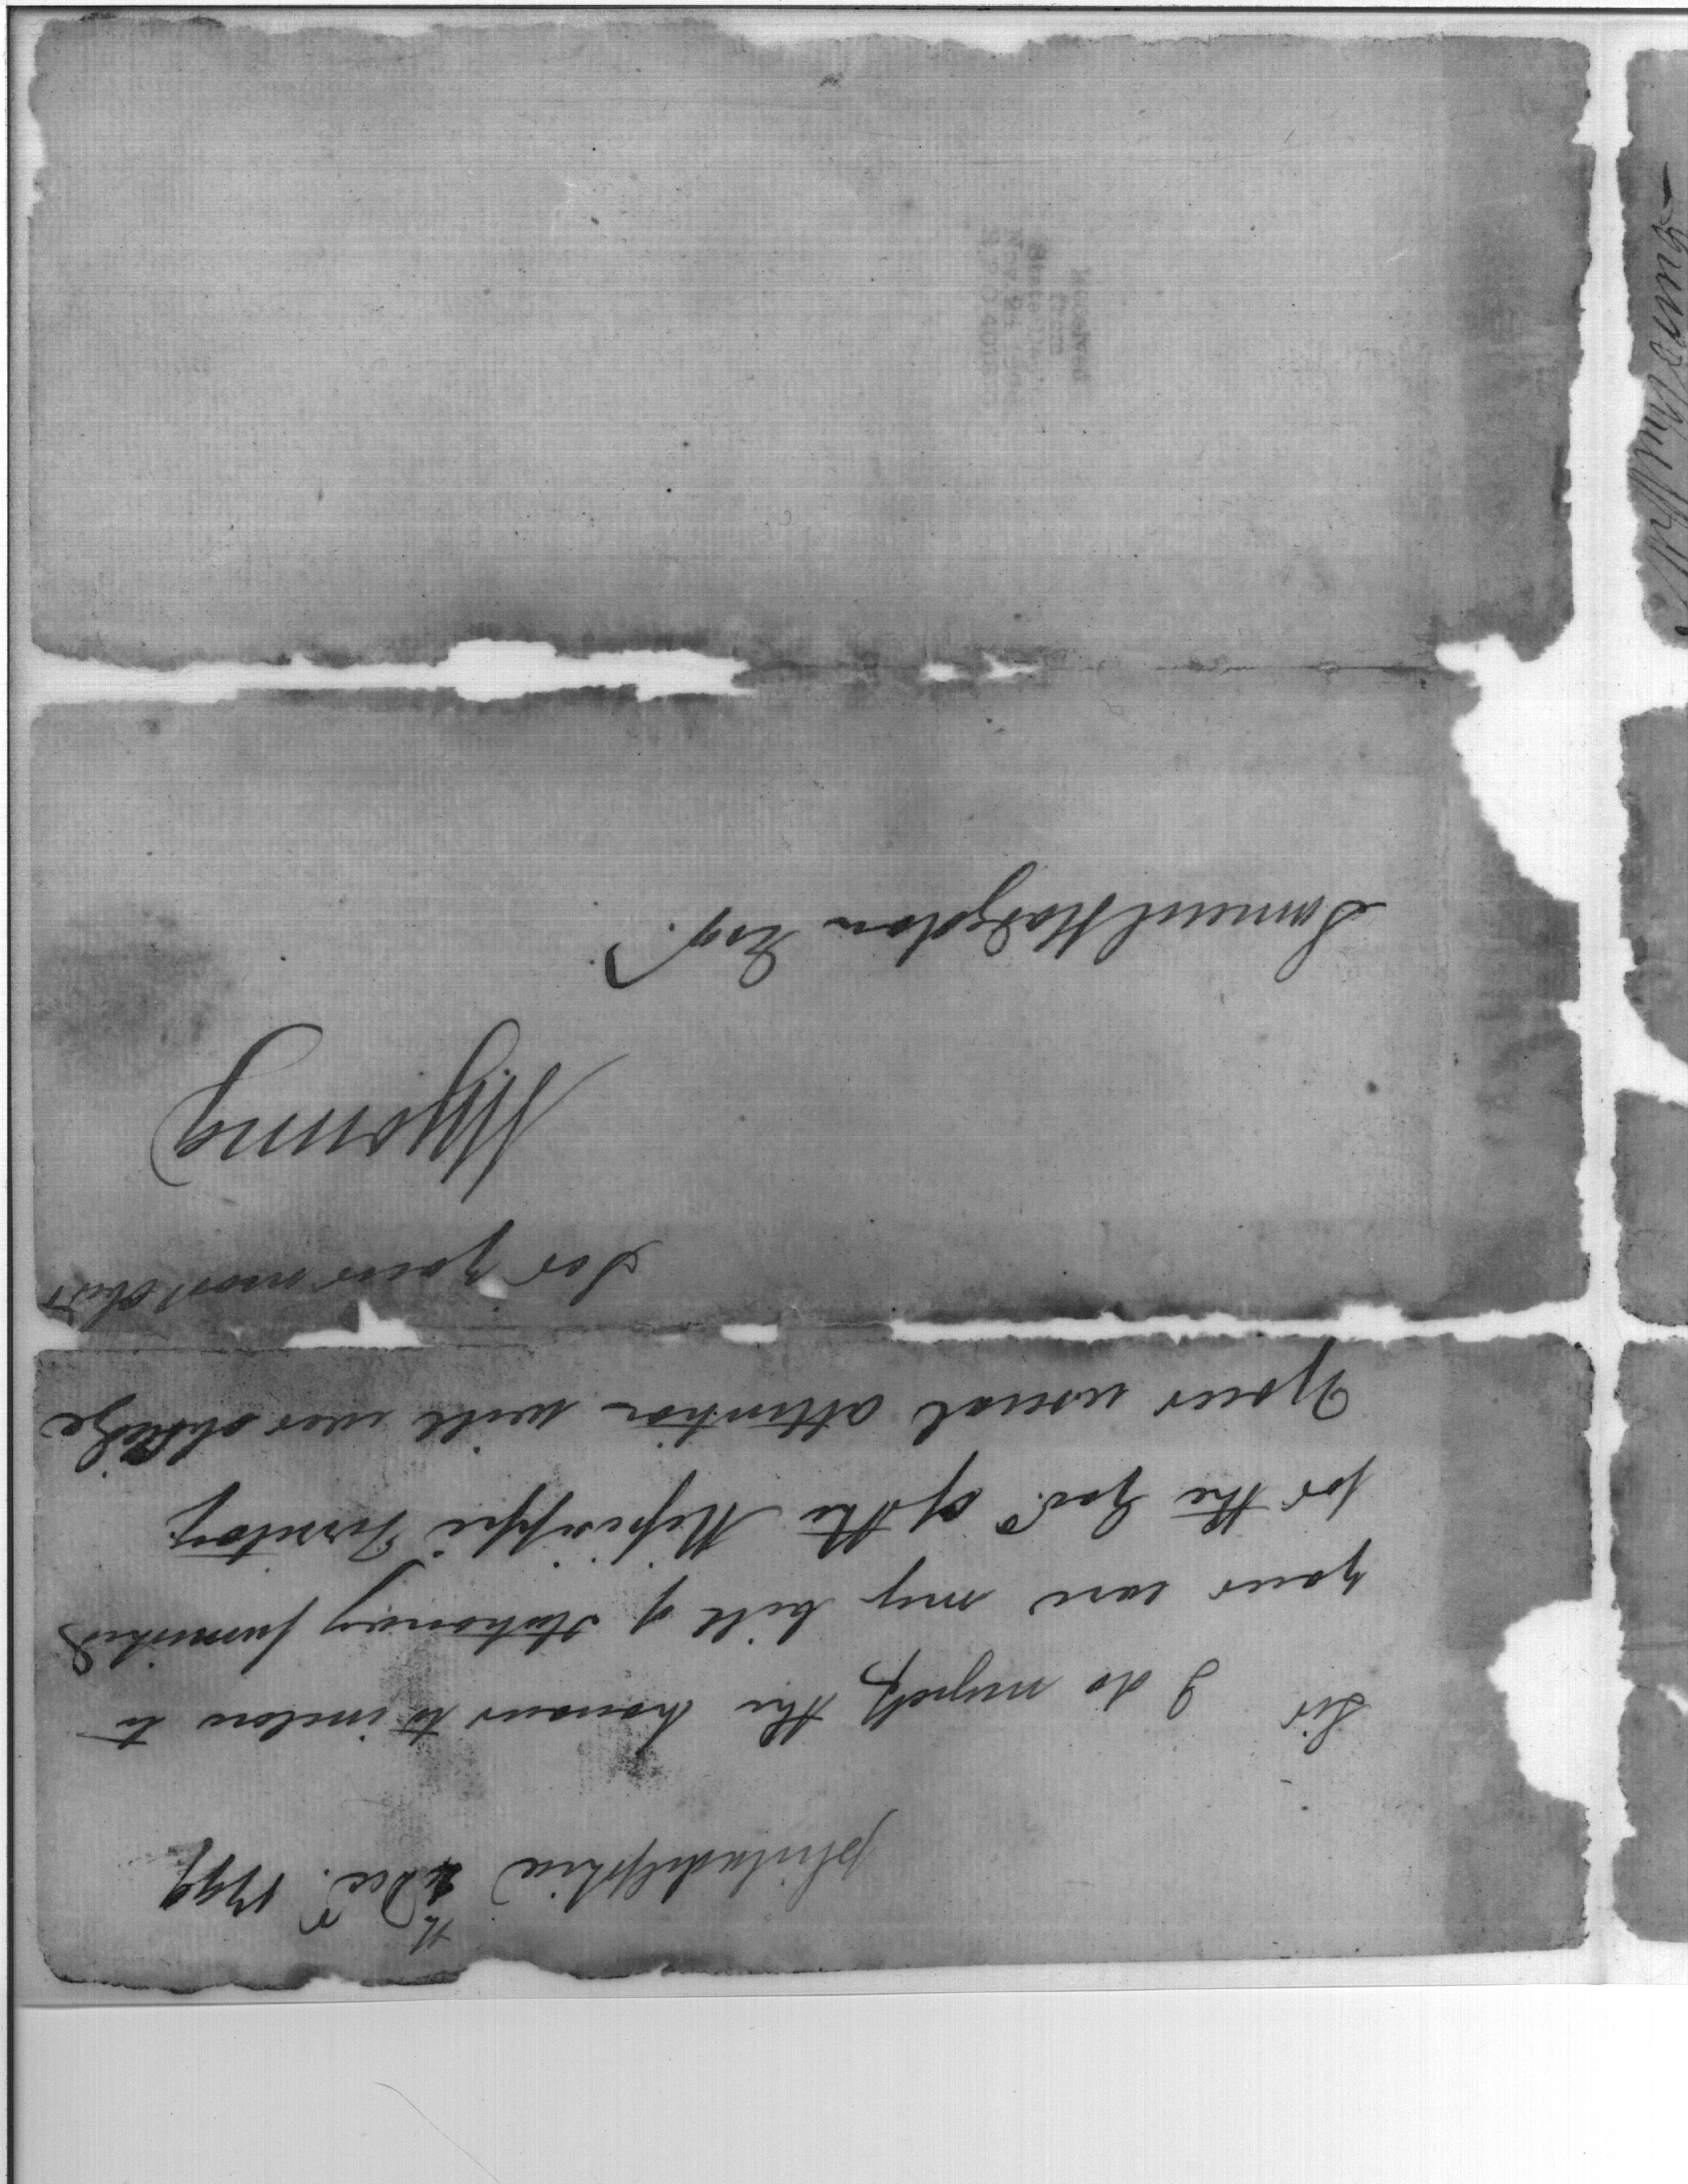 philadelphia 4th Decr. 1799
Sir I do myself the honour to inclose to
your care my bill of stationary furnished
for the Govr. of the Missisippi Territory.
Your usual attention will ever obledge
Sir your most Obt
WYoung
Samuel Hodgdon Esqr.
Received
from